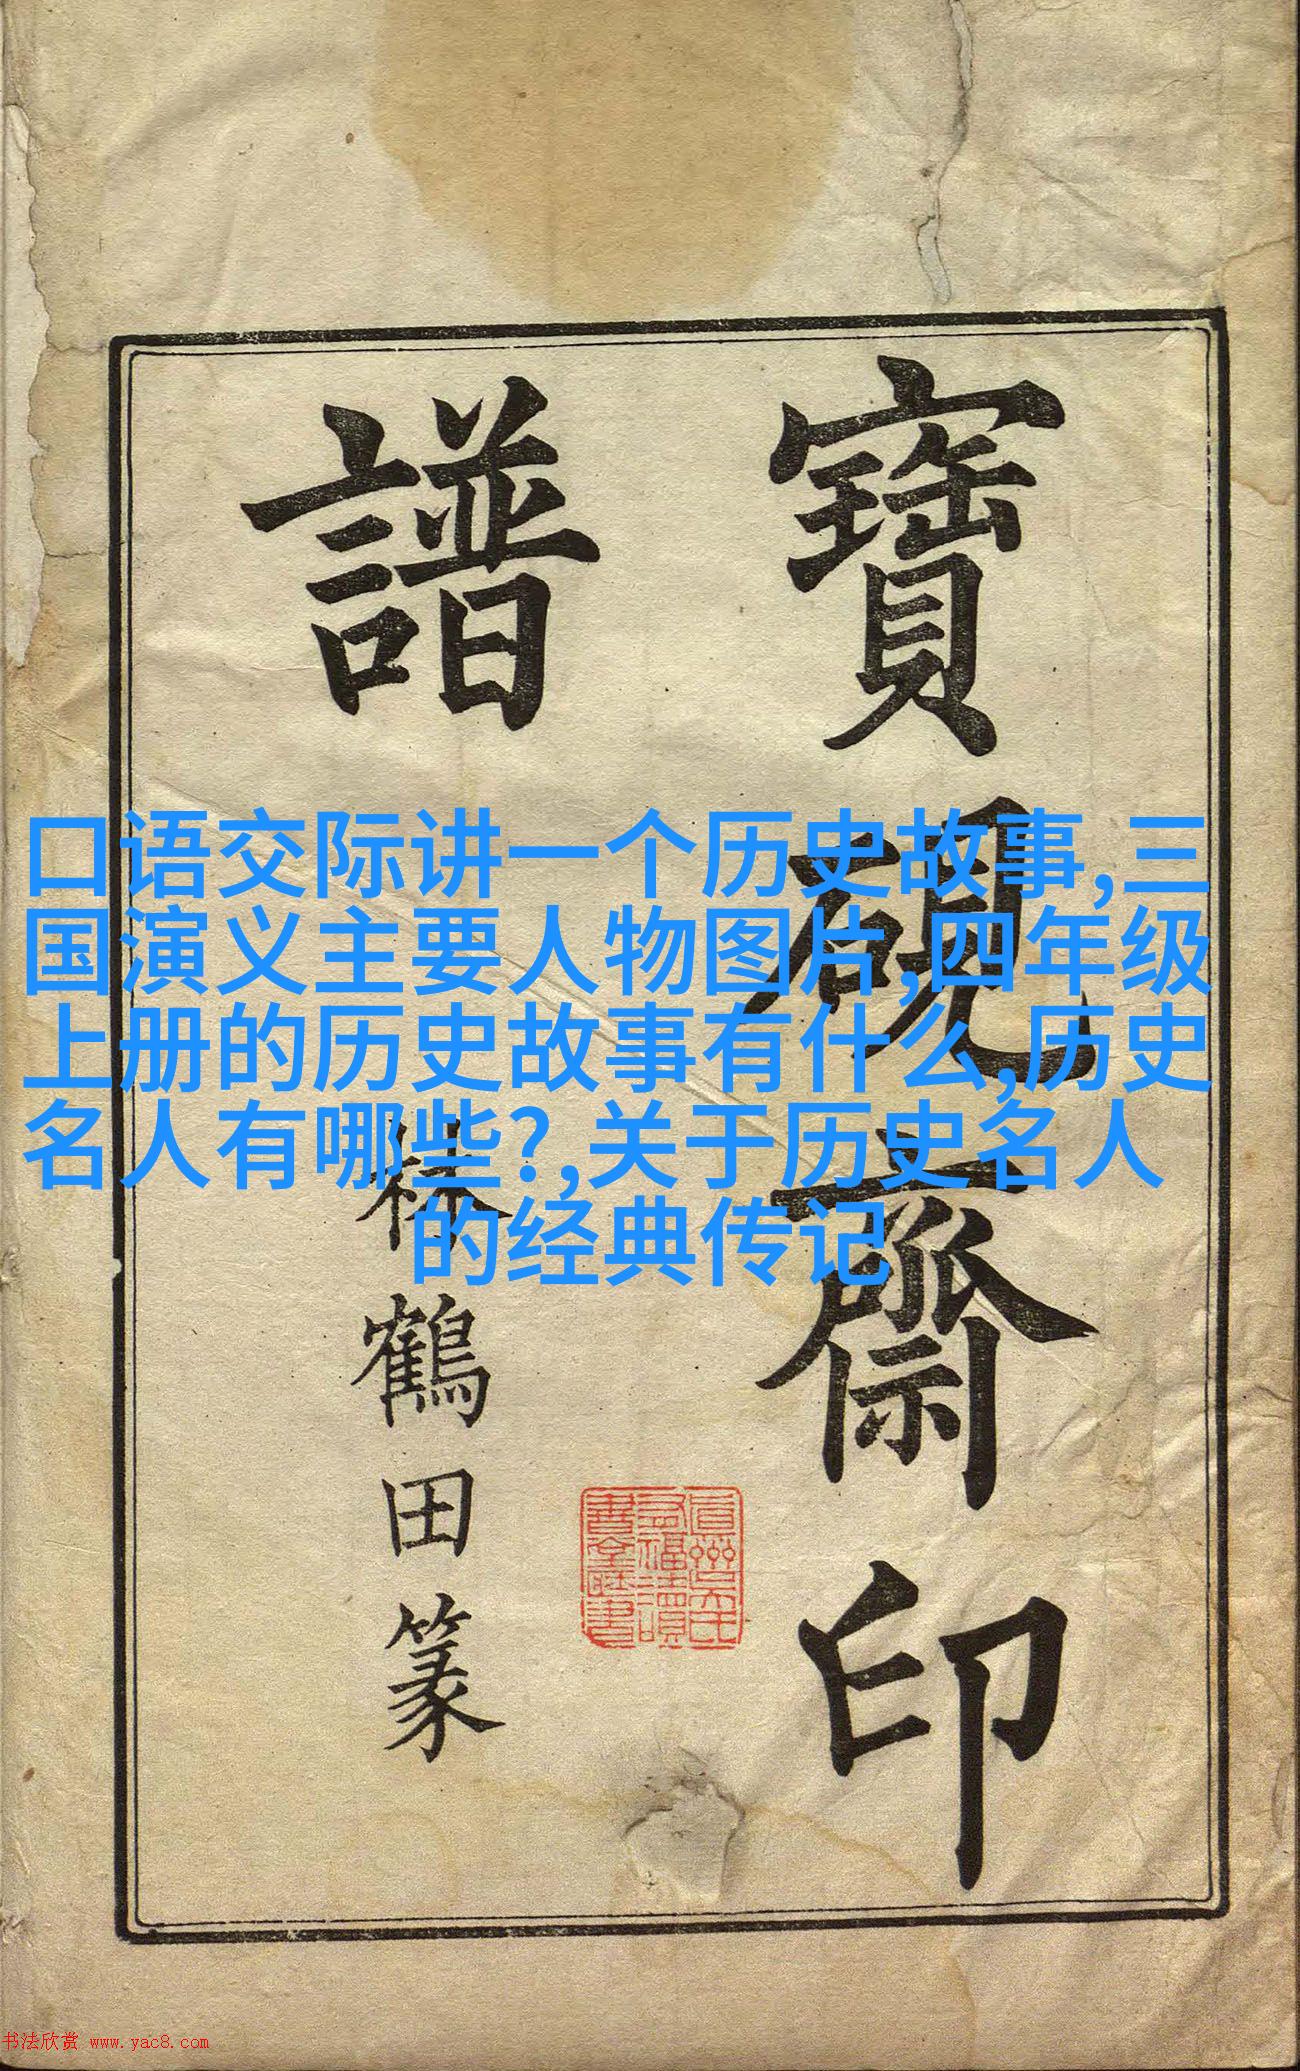 寶硯齋印
譜
林鶴田篆
口语交际讲一个历史故事,三
国演义主要人物图片,四年级
上册的历史故事有什么,历史
名人有哪些?,关于历史名人
的经典传记
书法欣赏 www.yac8.com